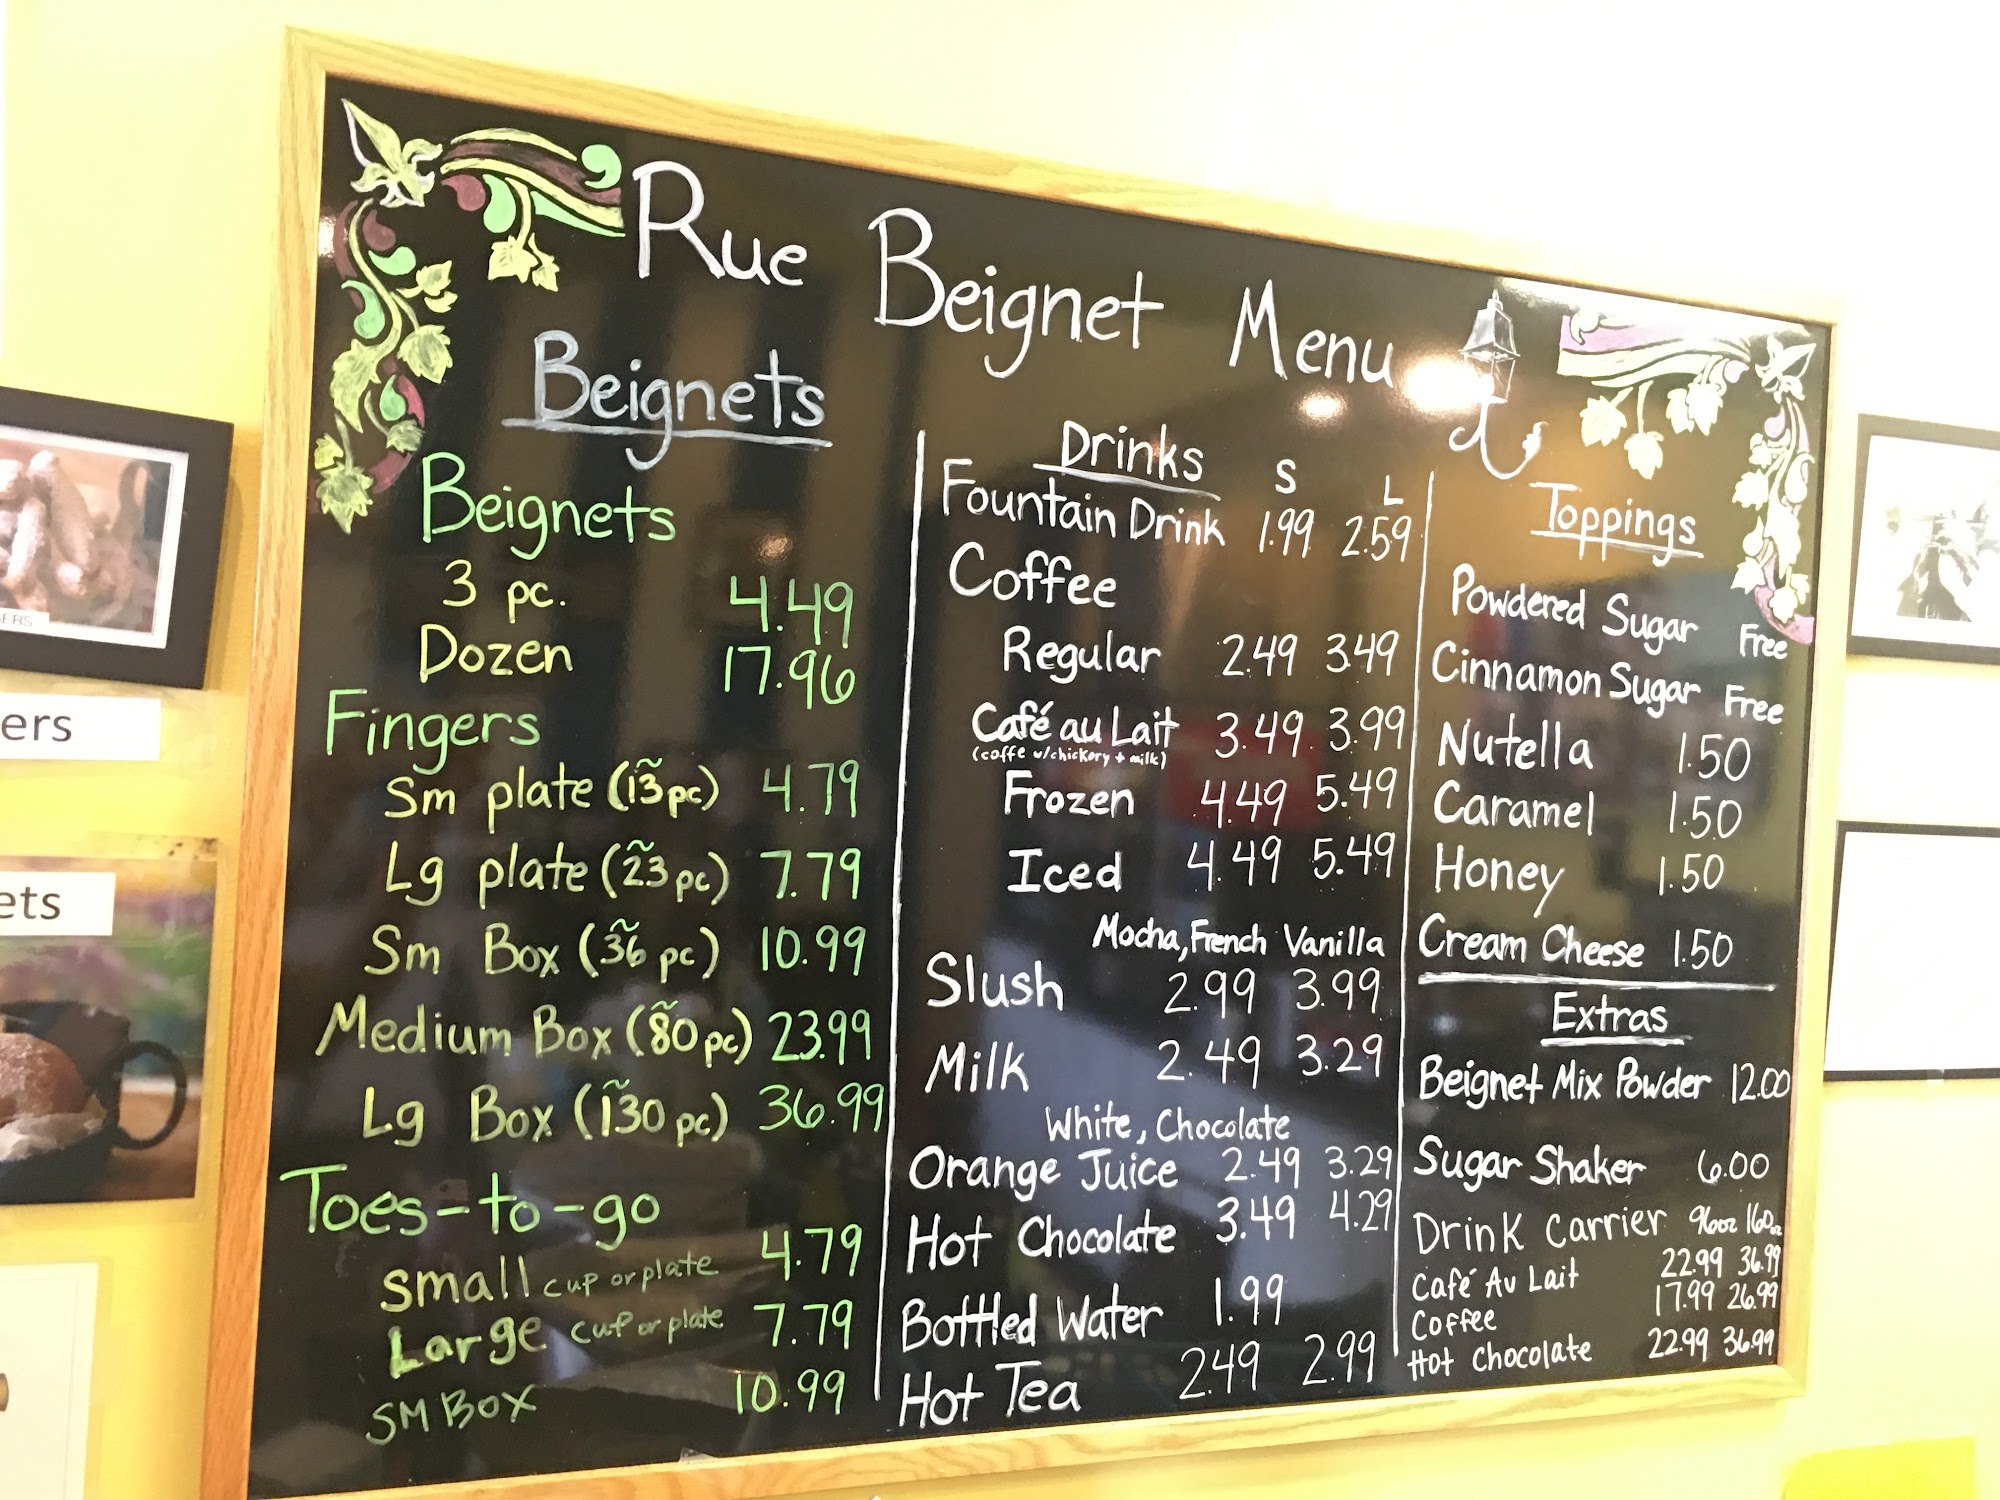 Rue Beignet Menu
Beignets
Beignets
3 pc. 4.49
Dozen 17.96
Fingers
Sm plate (~13 pc) 4.79
Lg plate (~23 pc) 7.79
Sm Box (~36 pc) 10.99
Medium Box (~80 pc) 23.99
Lg Box (~130 pc) 36.99
Toes-to-go
small cup or plate 4.79
Large cup or plate 7.79
SM BOX 10.99
Drinks S L
Fountain Drink 1.99 2.59
Coffee
Regular 2.49 3.49
Café au Lait 3.49 3.99
(coffe w/chickory + milk)
Frozen 4.49 5.49
Iced 4.49 5.49
Mocha, French Vanilla
Slush 2.99 3.99
Milk 2.49 3.29
White, Chocolate
Orange Juice 2.49 3.29
Hot Chocolate 3.49 4.29
Bottled Water 1.99
Hot Tea 2.49 2.99
Toppings
Powdered Sugar Free
Cinnamon Sugar Free
Nutella 1.50
Caramel 1.50
Honey 1.50
Cream Cheese 1.50
Extras
Beignet Mix Powder 12.00
Sugar Shaker 6.00
Drink Carrier 96oz 160oz
Café Au Lait 22.99 36.99
Coffee 17.99 26.99
Hot Chocolate 22.99 36.99
ERS
ers
ets